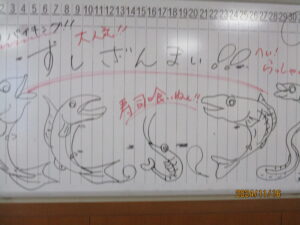 2 3 4 5 6 7 8 9 10 11 12 13 14 15 16 17 18 19 20 21 22 23 24 25 26 27 28 29 30
大人気!!
すしざんまい!!
へい!
らっしゃい
寿司食いねぇ!!
2024/11/16